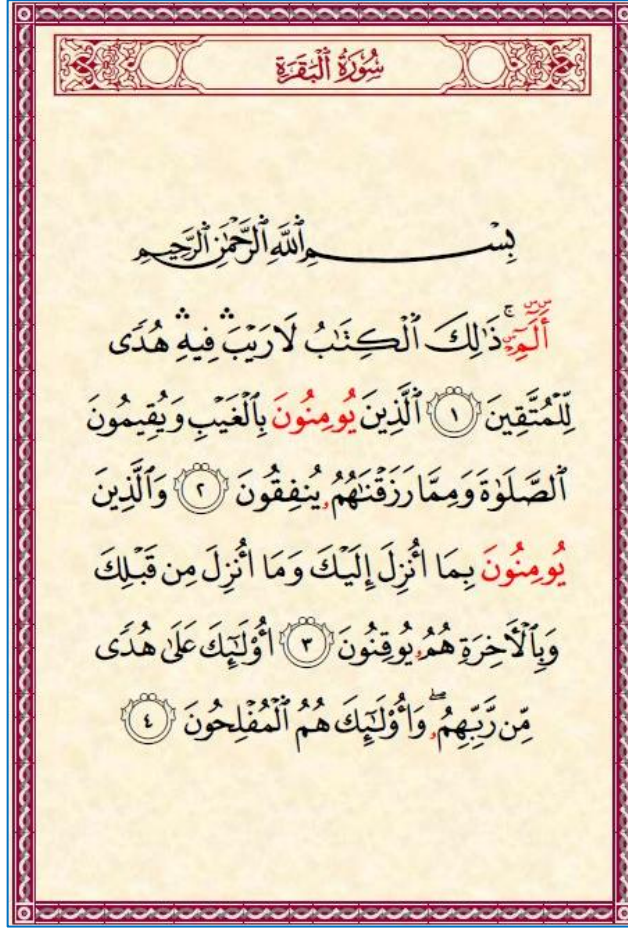 سُورَةُ ٱلۡبَقَرَةِ
بِسۡمِ ٱللَّهِ ٱلرَّحۡمَٰنِ ٱلرَّحِيمِ
أَلَٓمِّٓۚ ذَٰلِكَ ٱلۡكِتَٰبُ لَا رَيۡبَۛ فِيهِۛ هُدٗى
لِّلۡمُتَّقِينَ ١ ٱلَّذِينَ يُومِنُونَ بِٱلۡغَيۡبِ وَيُقِيمُونَ
ٱلصَّلَوٰةَ وَمِمَّا رَزَقۡنَٰهُمُۥ يُنفِقُونَ ٢ وَٱلَّذِينَ
يُومِنُونَ بِمَا أُنزِلَ إِلَيۡكَ وَمَا أُنزِلَ مِن قَبۡلِكَ
وَبِٱلۡأَخِرَةِ هُمُۥ يُوقِنُونَ ٣ أُوْلَٰٓئِكَ عَلَىٰ هُدٗى
مِّن رَّبِّهِمُۥۖ وَأُوْلَٰٓئِكَ هُمُ ٱلۡمُفۡلِحُونَ ٤